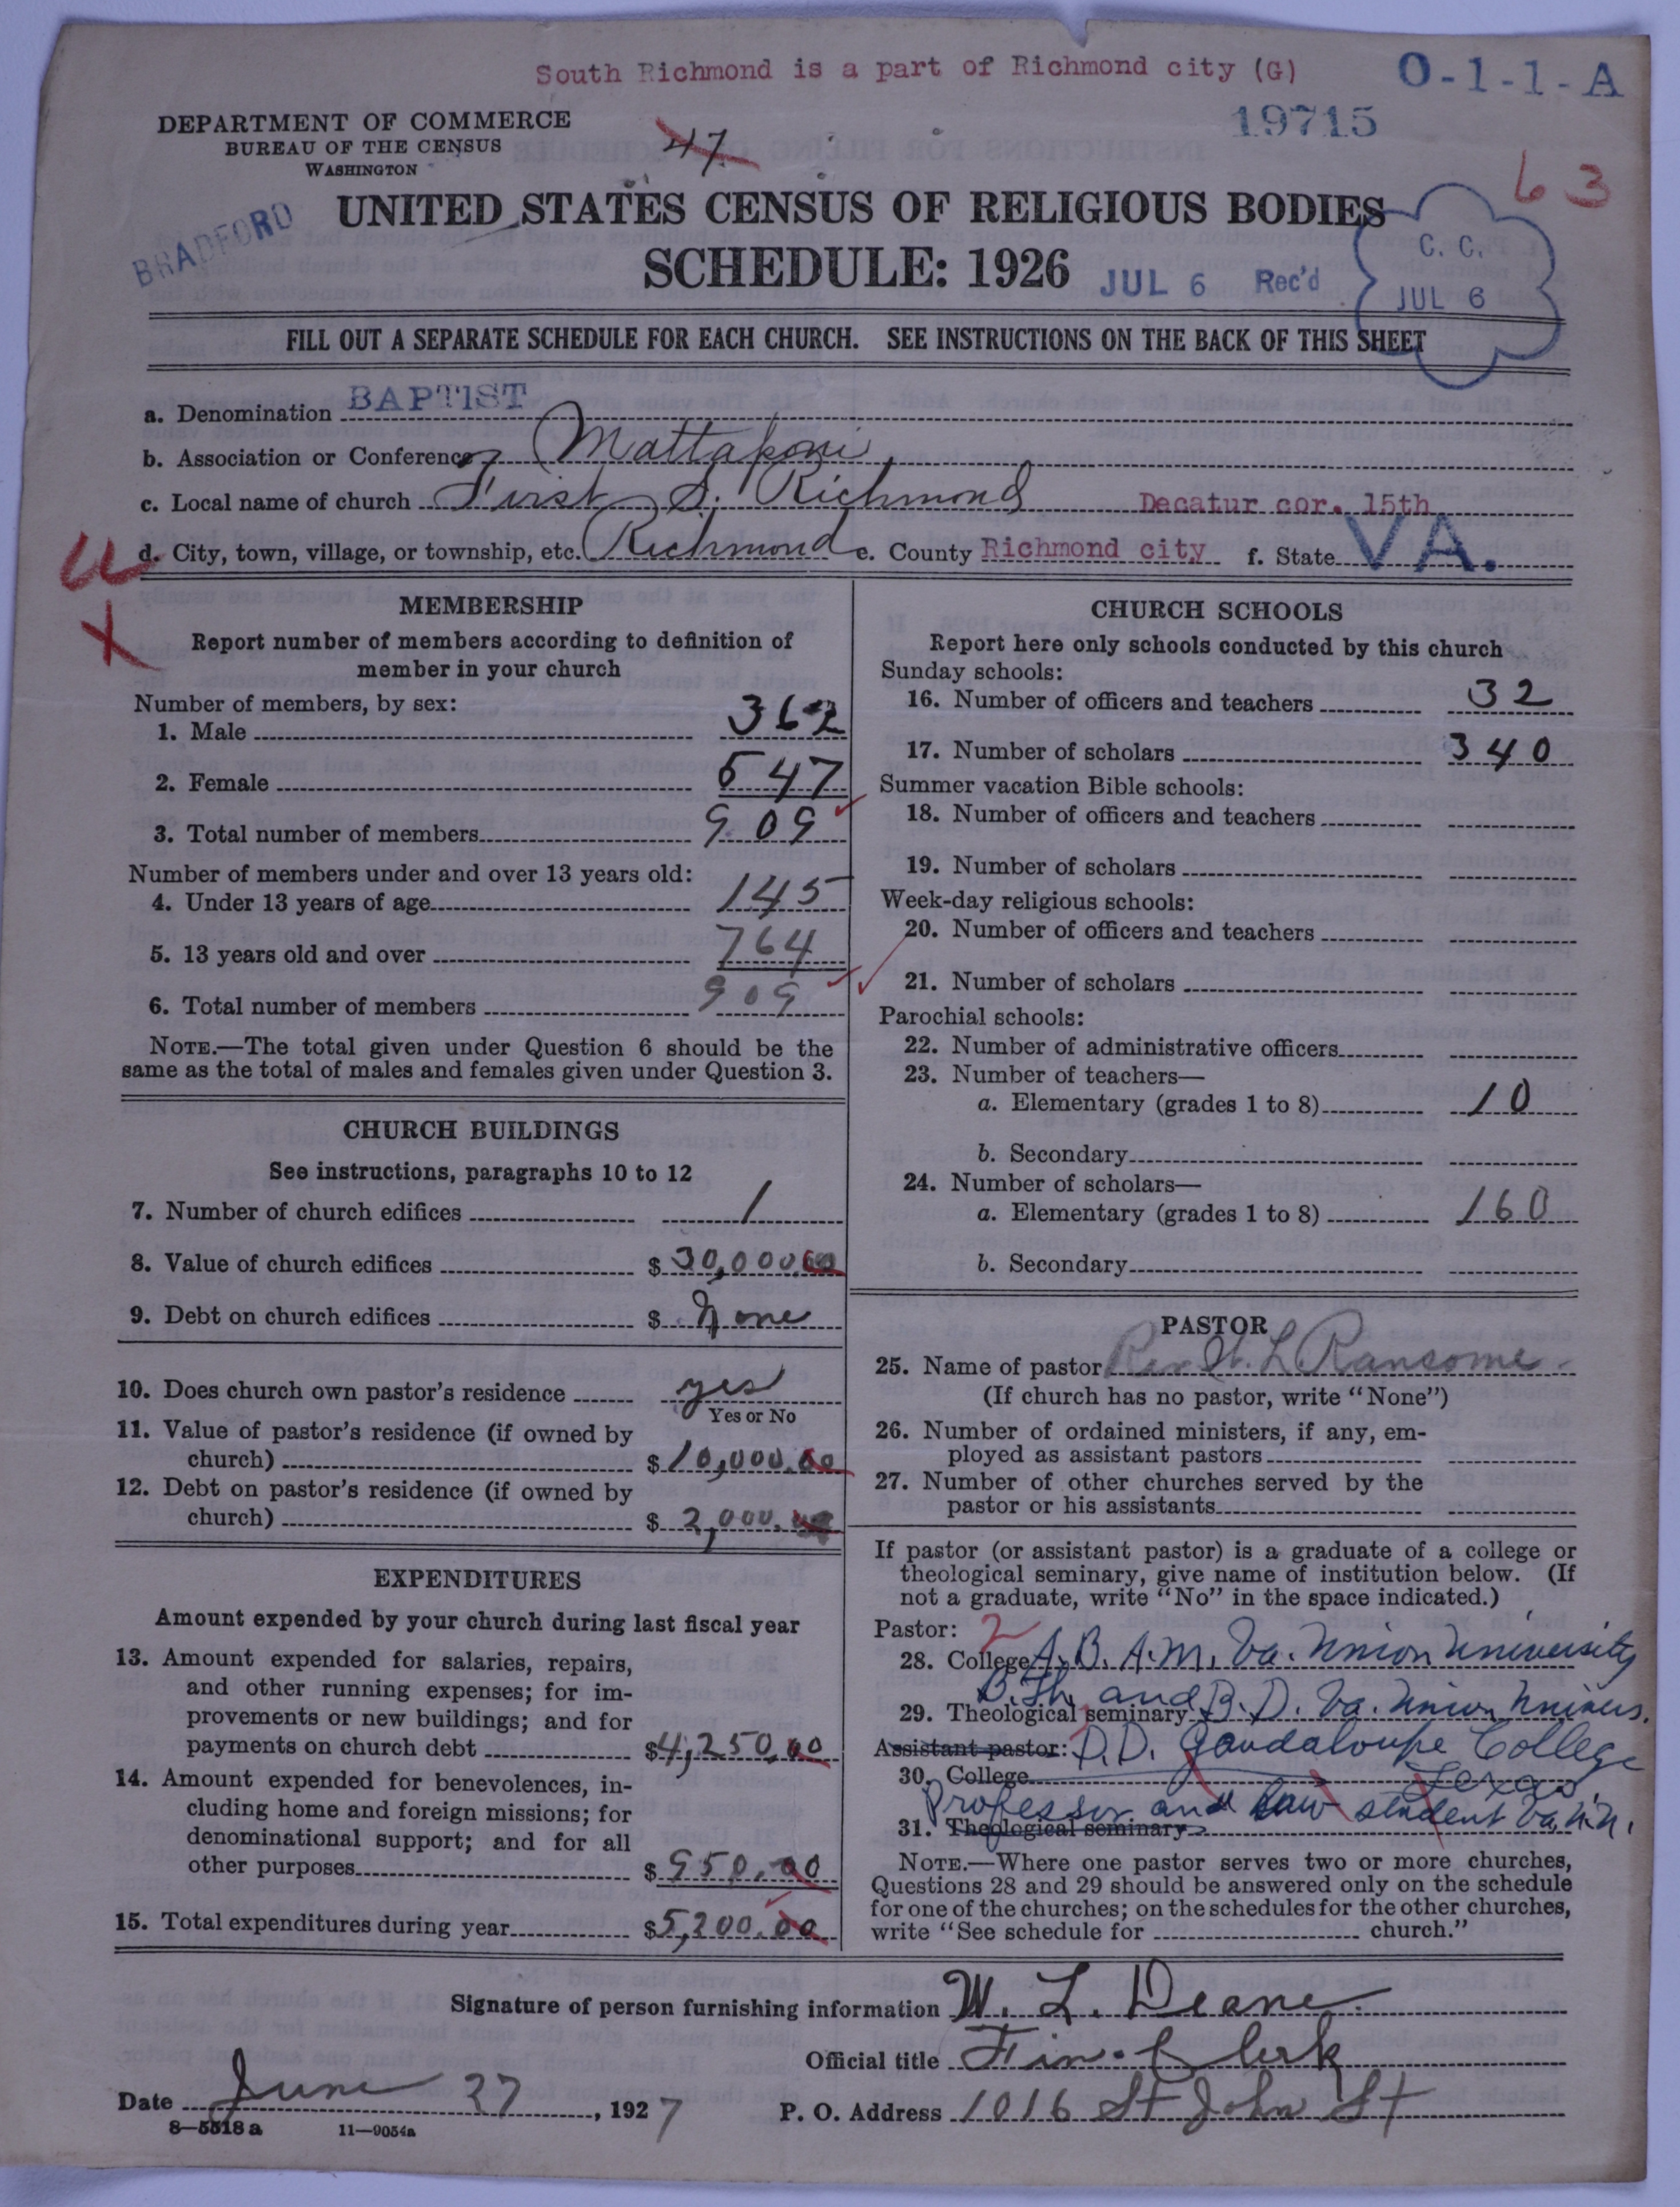 South Richmond is a part of Richmond city (G)
O-1-1-A
DEPARTMENT OF COMMERCE
BUREAU OF THE CENSUS
WASHINGTON
47
19715
63
BRADFORD
UNITED STATES CENSUS OF RELIGIOUS BODIES
SCHEDULE: 1926
JUL 6 Rec'd
C. C.
JUL 6
FILL OUT A SEPARATE SCHEDULE FOR EACH CHURCH. SEE INSTRUCTIONS ON THE BACK OF THIS SHEET
a. Denomination BAPTIST
b. Association or Conference Mattaponi
c. Local name of church First S. Richmond Decatur cor. 15th
d. City, town, village, or township, etc. Richmond e. County Richmond city f. State VA.
X
MEMBERSHIP
Report number of members according to definition of
member in your church
Number of members, by sex:
1. Male 362
2. Female 547
3. Total number of members 909
Number of members under and over 13 years old:
4. Under 13 years of age 145
5. 13 years old and over 764
6. Total number of members 909
NOTE.—The total given under Question 6 should be the
same as the total of males and females given under Question 3.
CHURCH BUILDINGS
See instructions, paragraphs 10 to 12
7. Number of church edifices 1
8. Value of church edifices $ 30,000.00
9. Debt on church edifices $ None
10. Does church own pastor's residence yes
Yes or No
11. Value of pastor's residence (if owned by
church) $ 10,000.00
12. Debt on pastor's residence (if owned by
church) $ 2,000.00
EXPENDITURES
Amount expended by your church during last fiscal year
13. Amount expended for salaries, repairs,
and other running expenses; for im-
provements or new buildings; and for
payments on church debt $4,250.00
14. Amount expended for benevolences, in-
cluding home and foreign missions; for
denominational support; and for all
other purposes $ 950.00
15. Total expenditures during year $5,200.00
CHURCH SCHOOLS
Report here only schools conducted by this church
Sunday schools:
16. Number of officers and teachers 32
17. Number of scholars 340
Summer vacation Bible schools:
18. Number of officers and teachers
19. Number of scholars
Week-day religious schools:
20. Number of officers and teachers
21. Number of scholars
Parochial schools:
22. Number of administrative officers
23. Number of teachers—
a. Elementary (grades 1 to 8) 10
b. Secondary
24. Number of scholars—
a. Elementary (grades 1 to 8) 160
b. Secondary
PASTOR
25. Name of pastor Rev W. L. Ransome
(If church has no pastor, write "None")
26. Number of ordained ministers, if any, em-
ployed as assistant pastors
27. Number of other churches served by the
pastor or his assistants
If pastor (or assistant pastor) is a graduate of a college or
theological seminary, give name of institution below. (If
not a graduate, write "No" in the space indicated.)
Pastor: 2
28. College A.B. A.M. Va. Union University
B.Th. and B.D. Va. Union Univers.
29. Theological seminary
Assistant pastor: D.D. Gaudaloupe College
30. College Texas
Professor and Law student Va. U.
31. Theological seminary
NOTE.—Where one pastor serves two or more churches,
Questions 28 and 29 should be answered only on the schedule
for one of the churches; on the schedules for the other churches,
write "See schedule for church."
Signature of person furnishing information W. L. Deane
Official title Fin. Clerk
Date June 27, 1927
P. O. Address 1016 St John St
8—5518 a 11—9054a